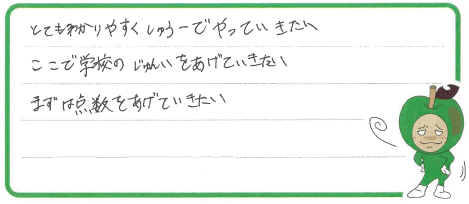 とてもわかりやすくしゅうーでやっていきたい
ここで学校のじゅんいをあげていきたい
まずは点数をあげていきたい